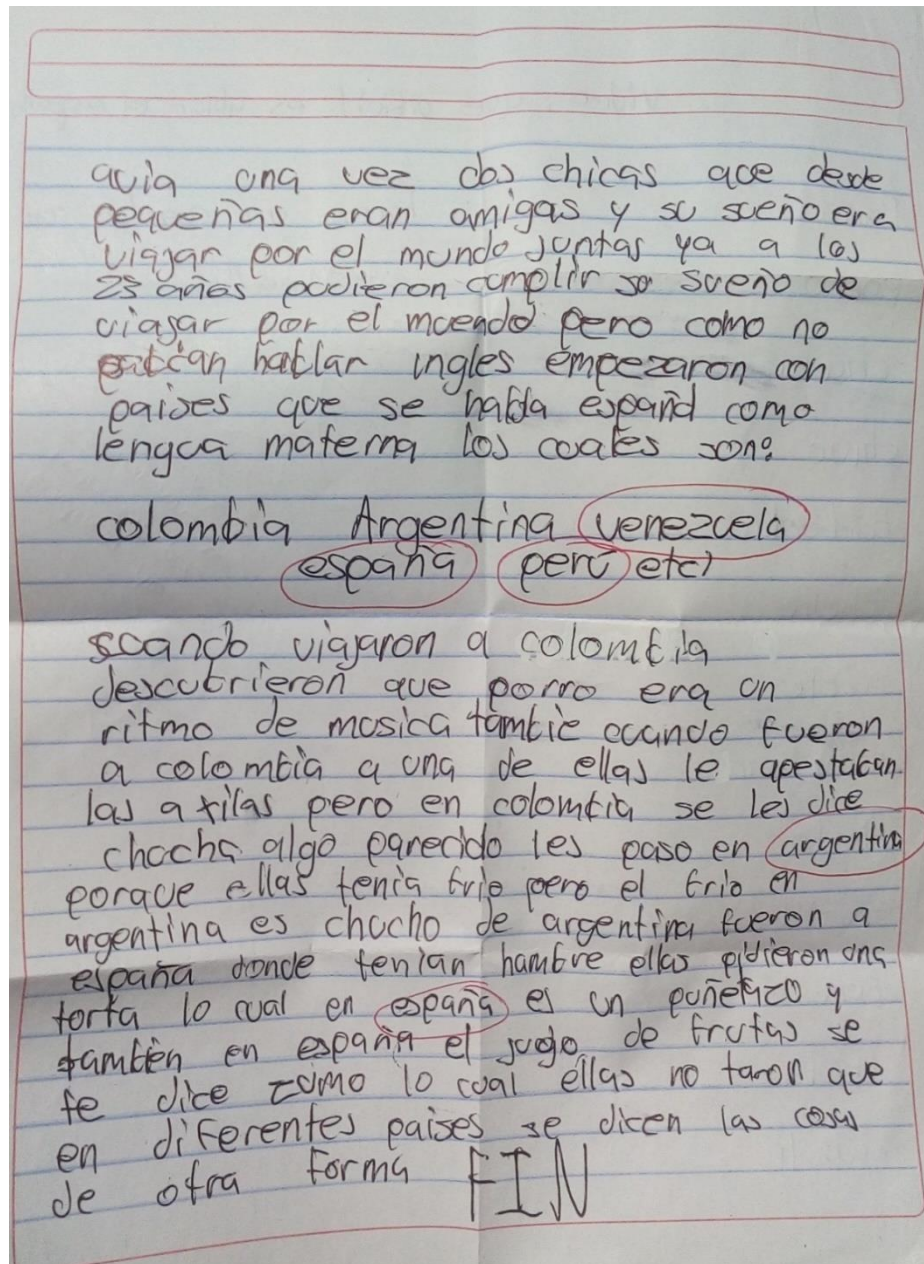 avia una vez dos chicas que desde
pequeñas eran amigas y su sueño era
viajar por el mundo juntas ya a los
23 años pudieron cumplir su sueño de
viajar por el muendo pero como no
hablar ingles empezaron con
paises que se habla español como
lengua materna los cuales son:
colombia Argentina venezuela
españa peru etc)
scuando viajaron a colombia
descubrieron que porro era un
ritmo de musica tambie cuando fueron
a colombia a una de ellas le apestaban
las axilas pero en colombia se les dice
chucha algo parecido les paso en argentina
porque ellas tenia frio pero el frio en
argentina es chucho de argentina fueron a
españa donde tenian hambre ellas pidieron una
torta lo cual en españa es un puñetazo y
también en españa el jugo de frutas se
te dice zumo lo cual ellas no taron que
en diferentes paises se dicen las cosas
de otra forma FIN